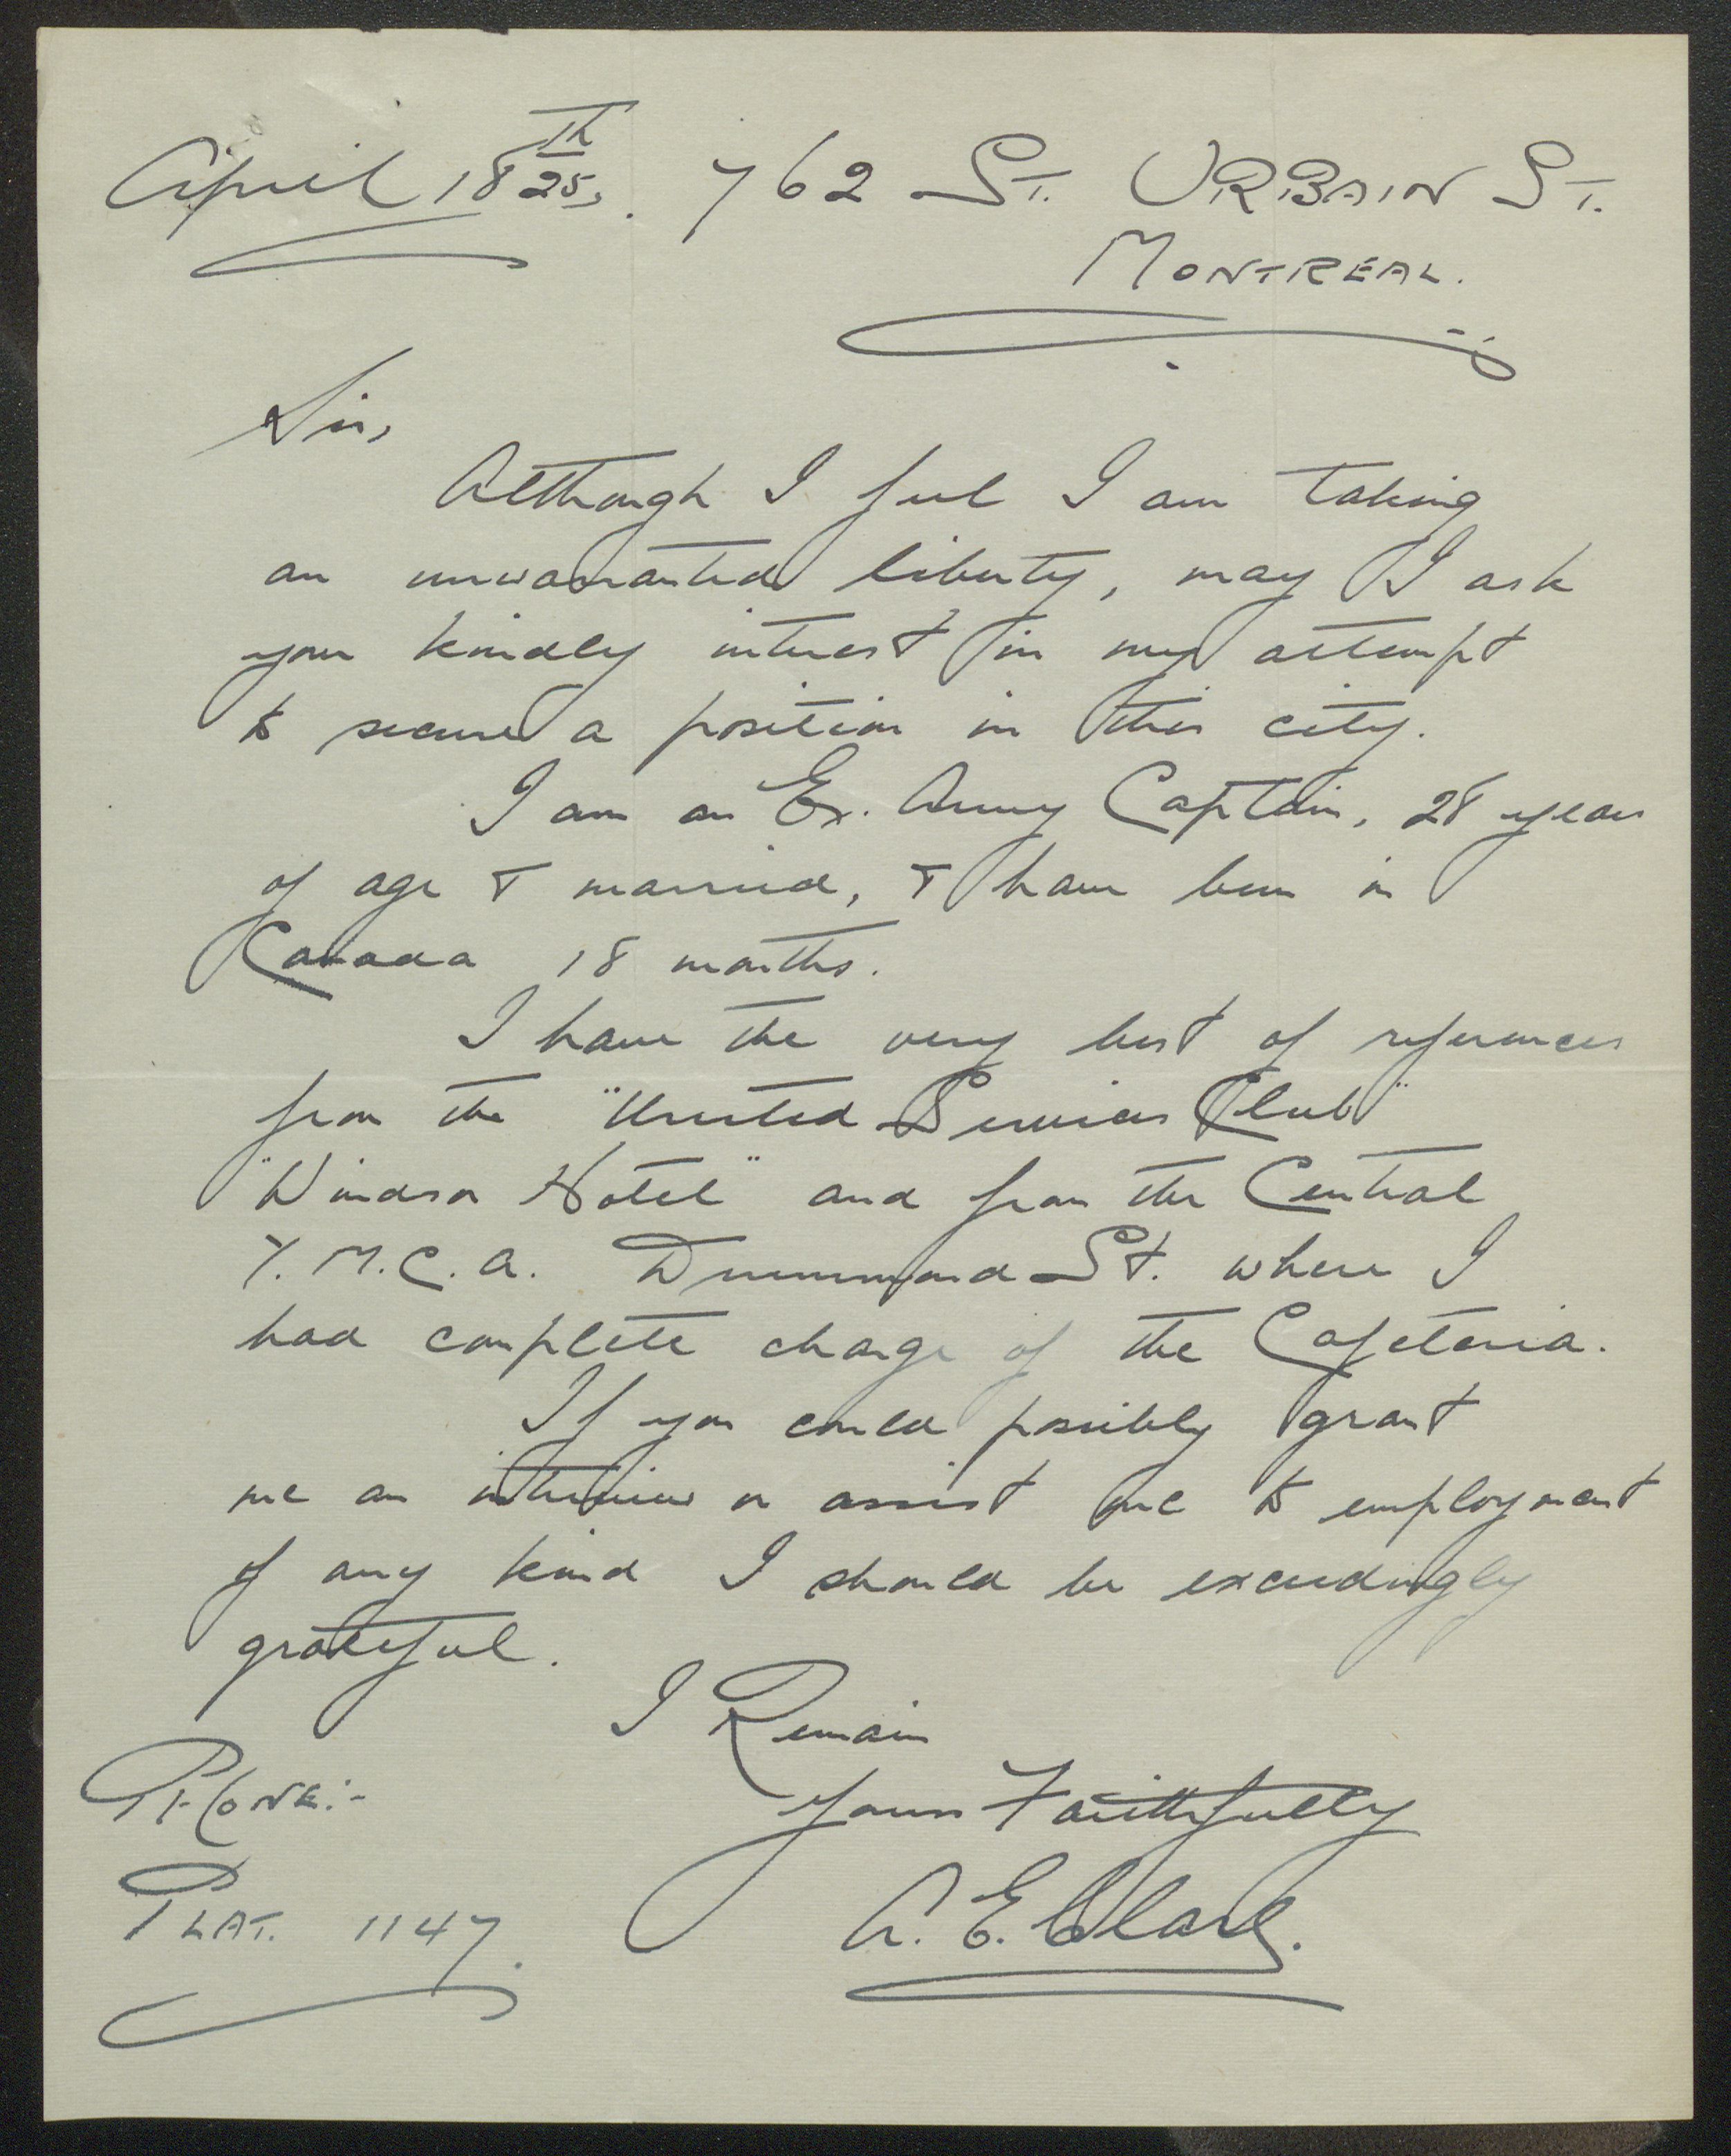 April 18th 25. 762 St. URBAIN St.
MONTREAL.
Sir,
Although I feel I am taking
an unwarranted liberty, may I ask
your kindly interest in my attempt
to secure a position in this city.
I am an Ex. Army Captain, 28 years
of age & married, & have been in
Canada 18 months.
I have the very best of references
from the "United Services Club"
"Windsor Hotel" and from the Central
Y.M.C.A. Drummond St. where I
had complete charge of the Cafeteria.
If you could possibly grant
me an interview or assist me to employment
of any kind I should be exceedingly
grateful.
I Remain
Yours Faithfully
A. E. Clark.
PHONE:-
PLAT. 1147.